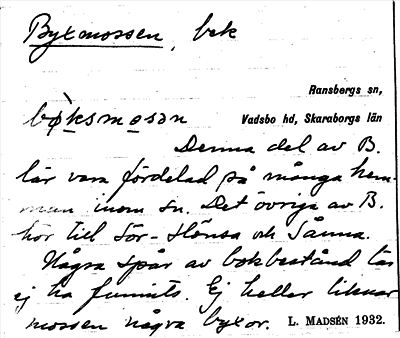 Byxmossen, bek
Ransbergs sn,
Vadsbo hd, Skaraborgs län
bo̱ksmo̱sən
Denna del av B.
lär vara fördelad på många hem-
man inom sn. Det övriga av B.
hör till Sör-Hönsa och Sånna.
Några spår av bokbestånd lär
ej ha funnits. Ej heller liknar
mossen några byxor. L. MADSÉN 1932.